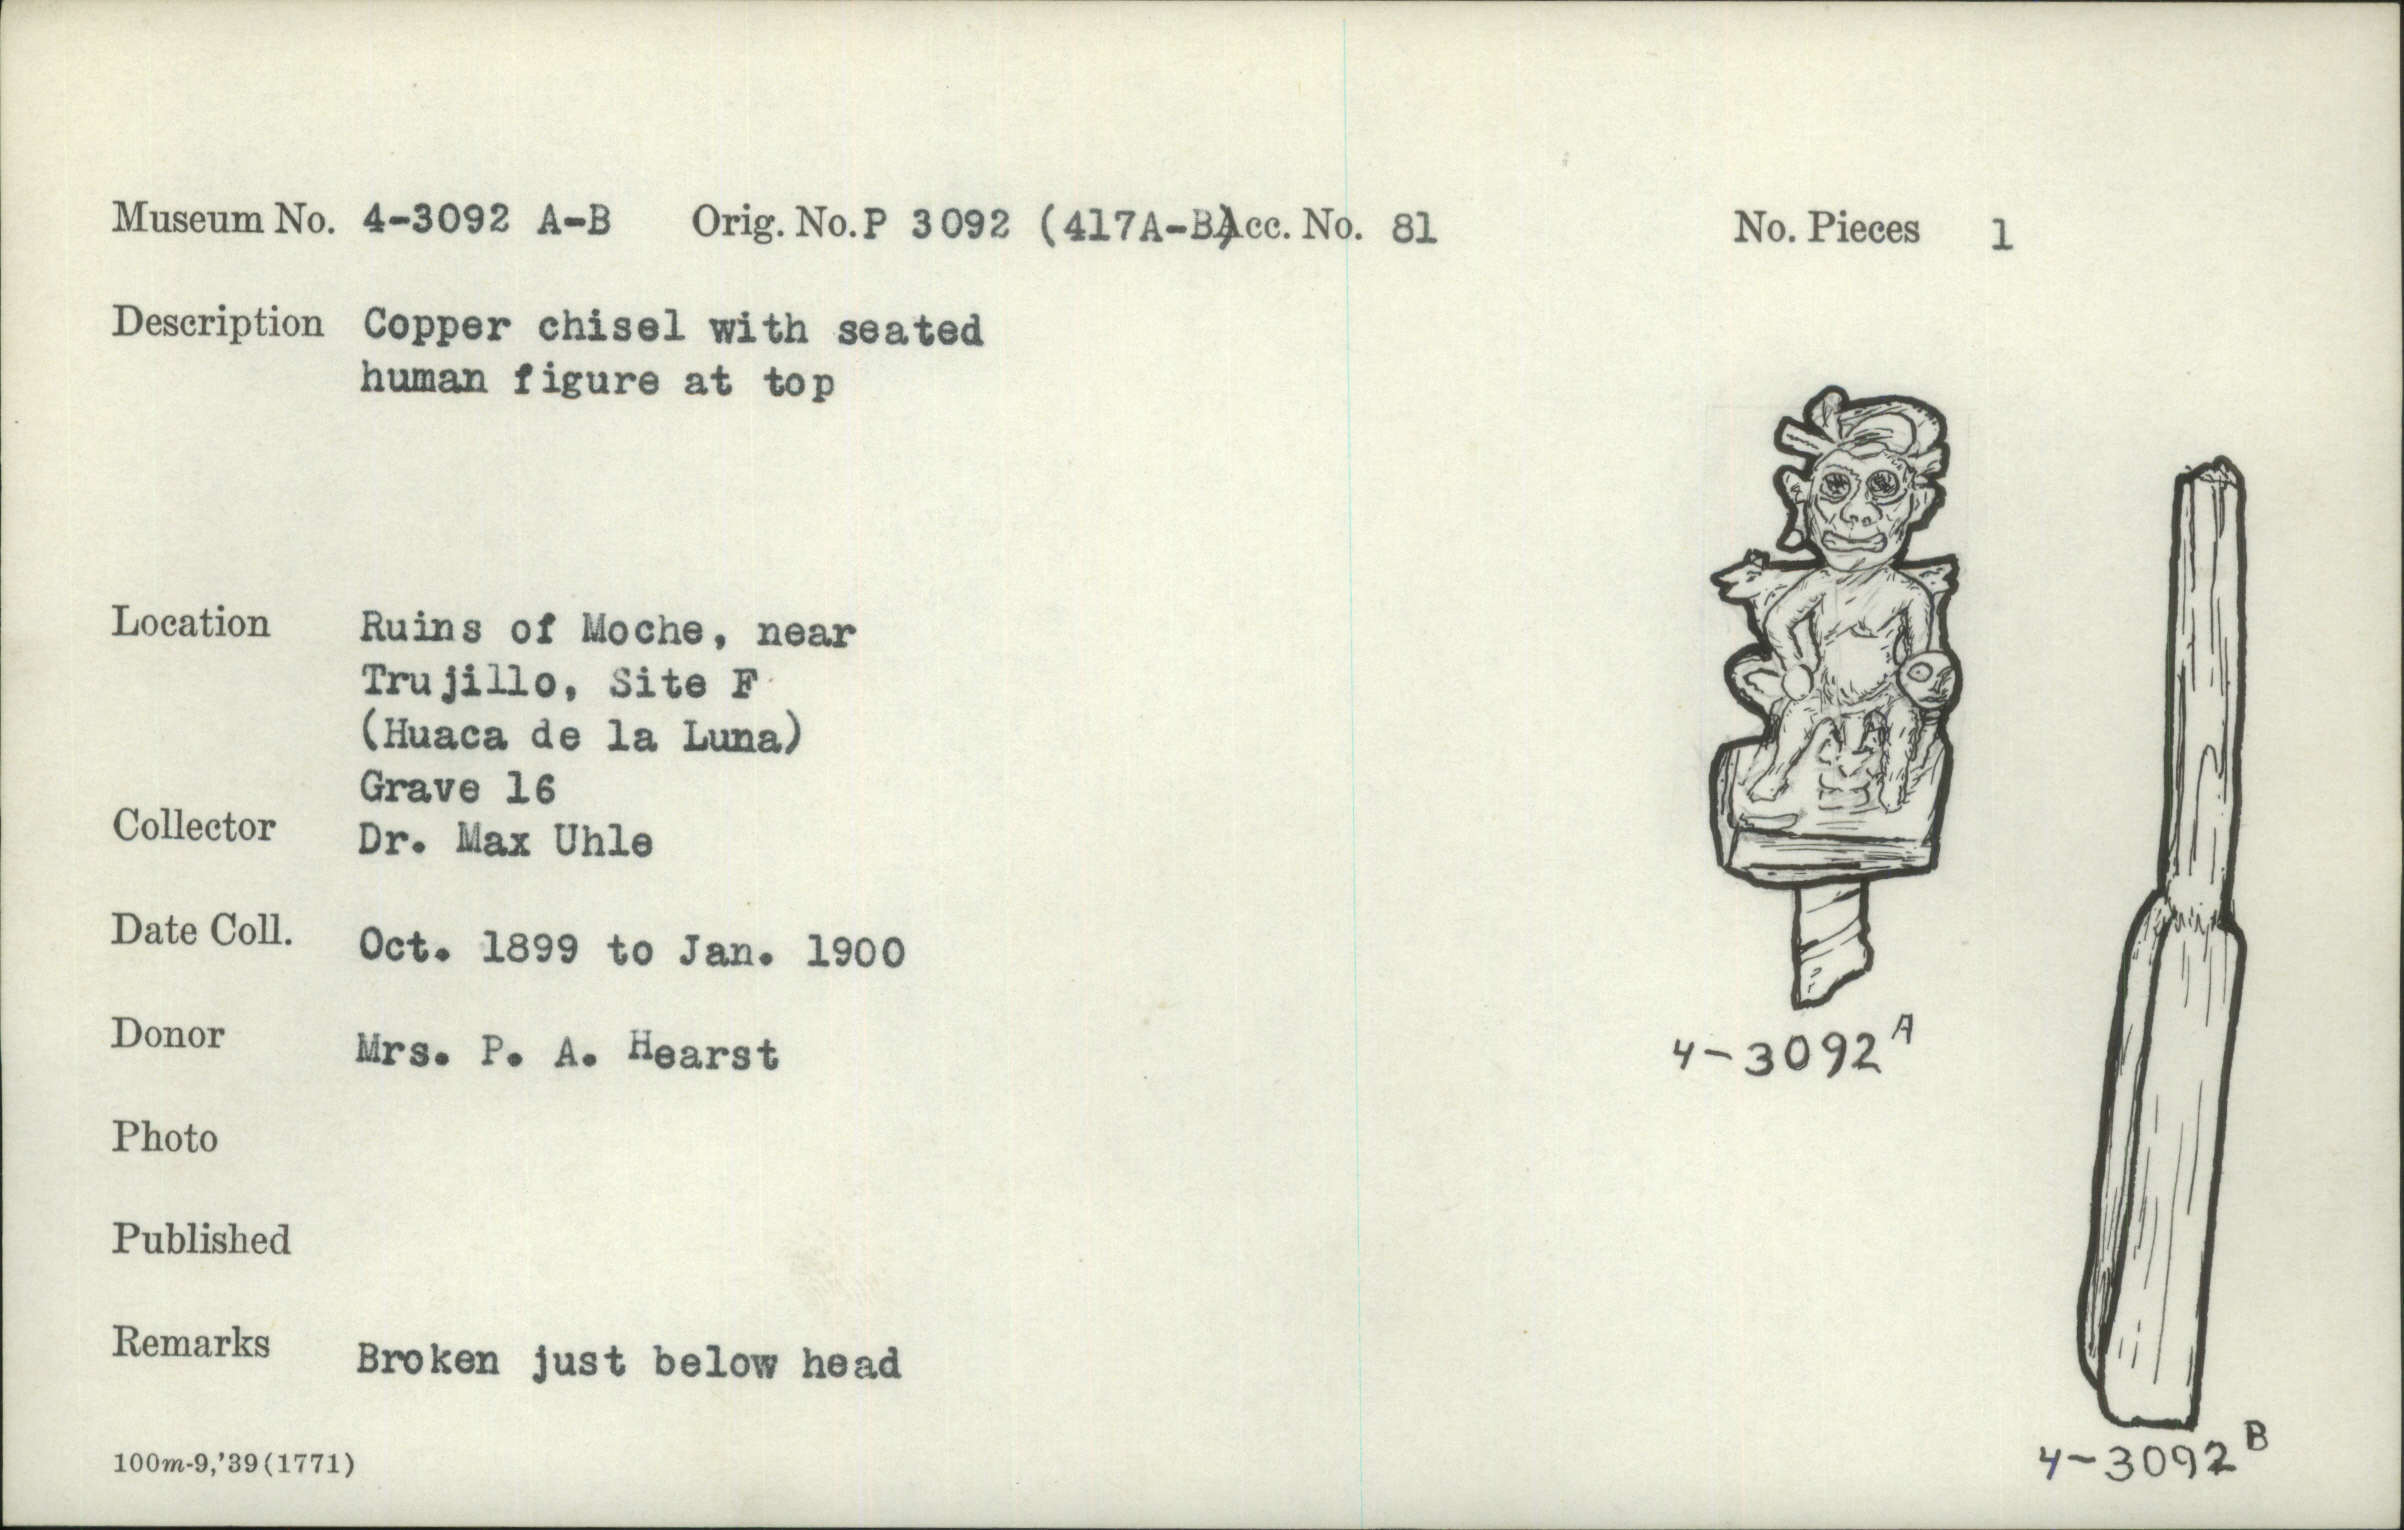 Museum No. 4-3092 A-B Orig. No. P 3092 (417A-B) Acc. No. 81 No. Pieces 1
Description Copper chisel with seated
human figure at top
Location Ruins of Moche, near
Trujillo, Site F
(Huaca de la Luna)
Grave 16
Collector Dr. Max Uhle
Date Coll. Oct. 1899 to Jan. 1900
Donor Mrs. P. A. Hearst
4-3092 A
Photo
Published
Remarks Broken just below head
100m-9,'39(1771)
4-3092 B